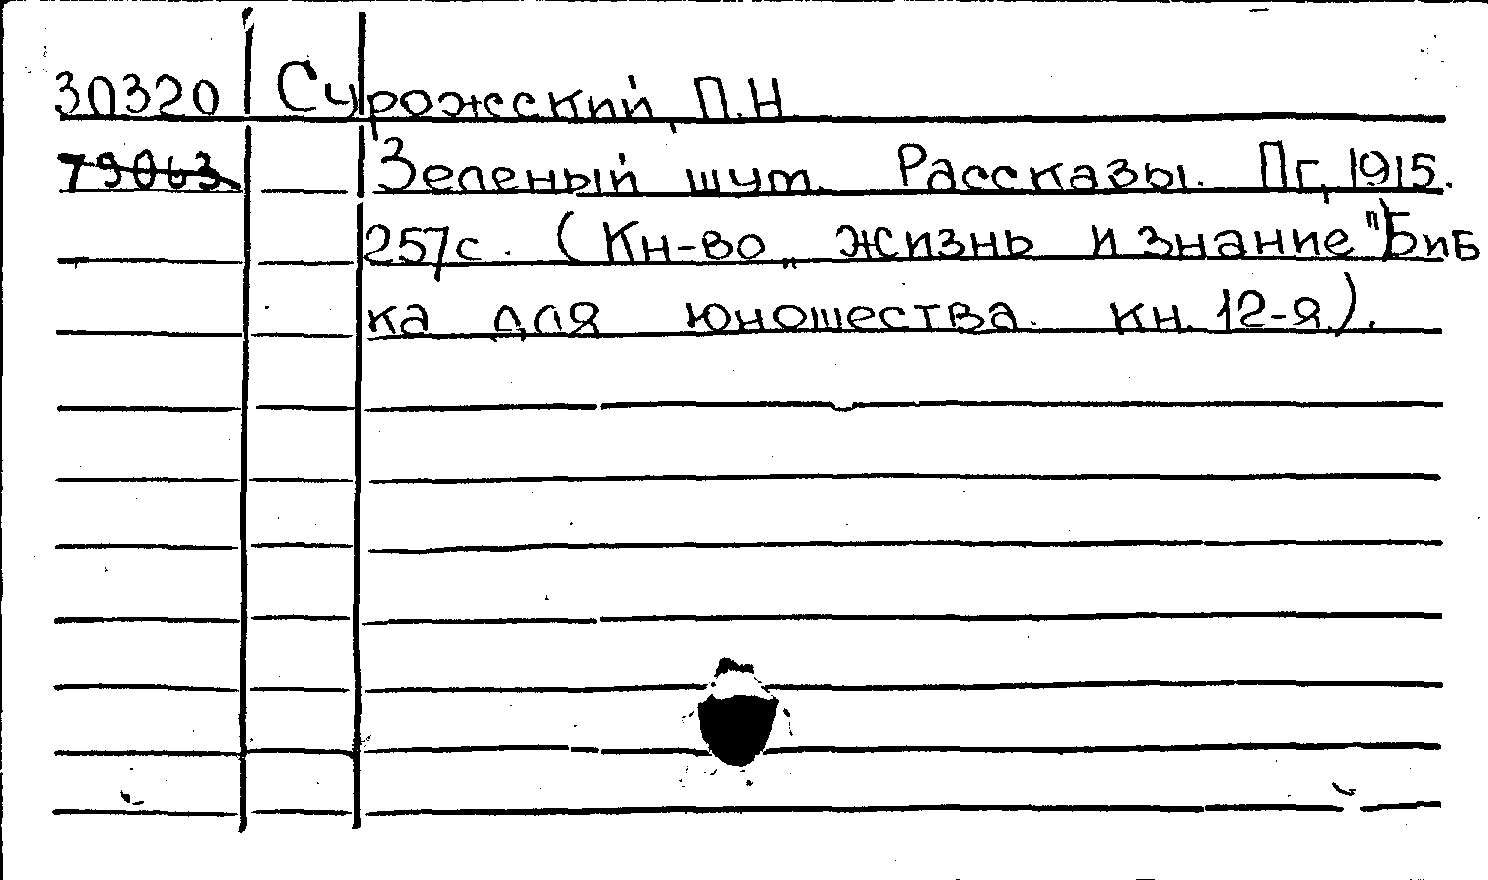 30320 Сурожский, П.Н.
79063 Зеленый шут. Рассказы. Пг, 1915.
257с. (Кн-во „жизнь и знание" Биб
ка для юношества. кн. 12-я).